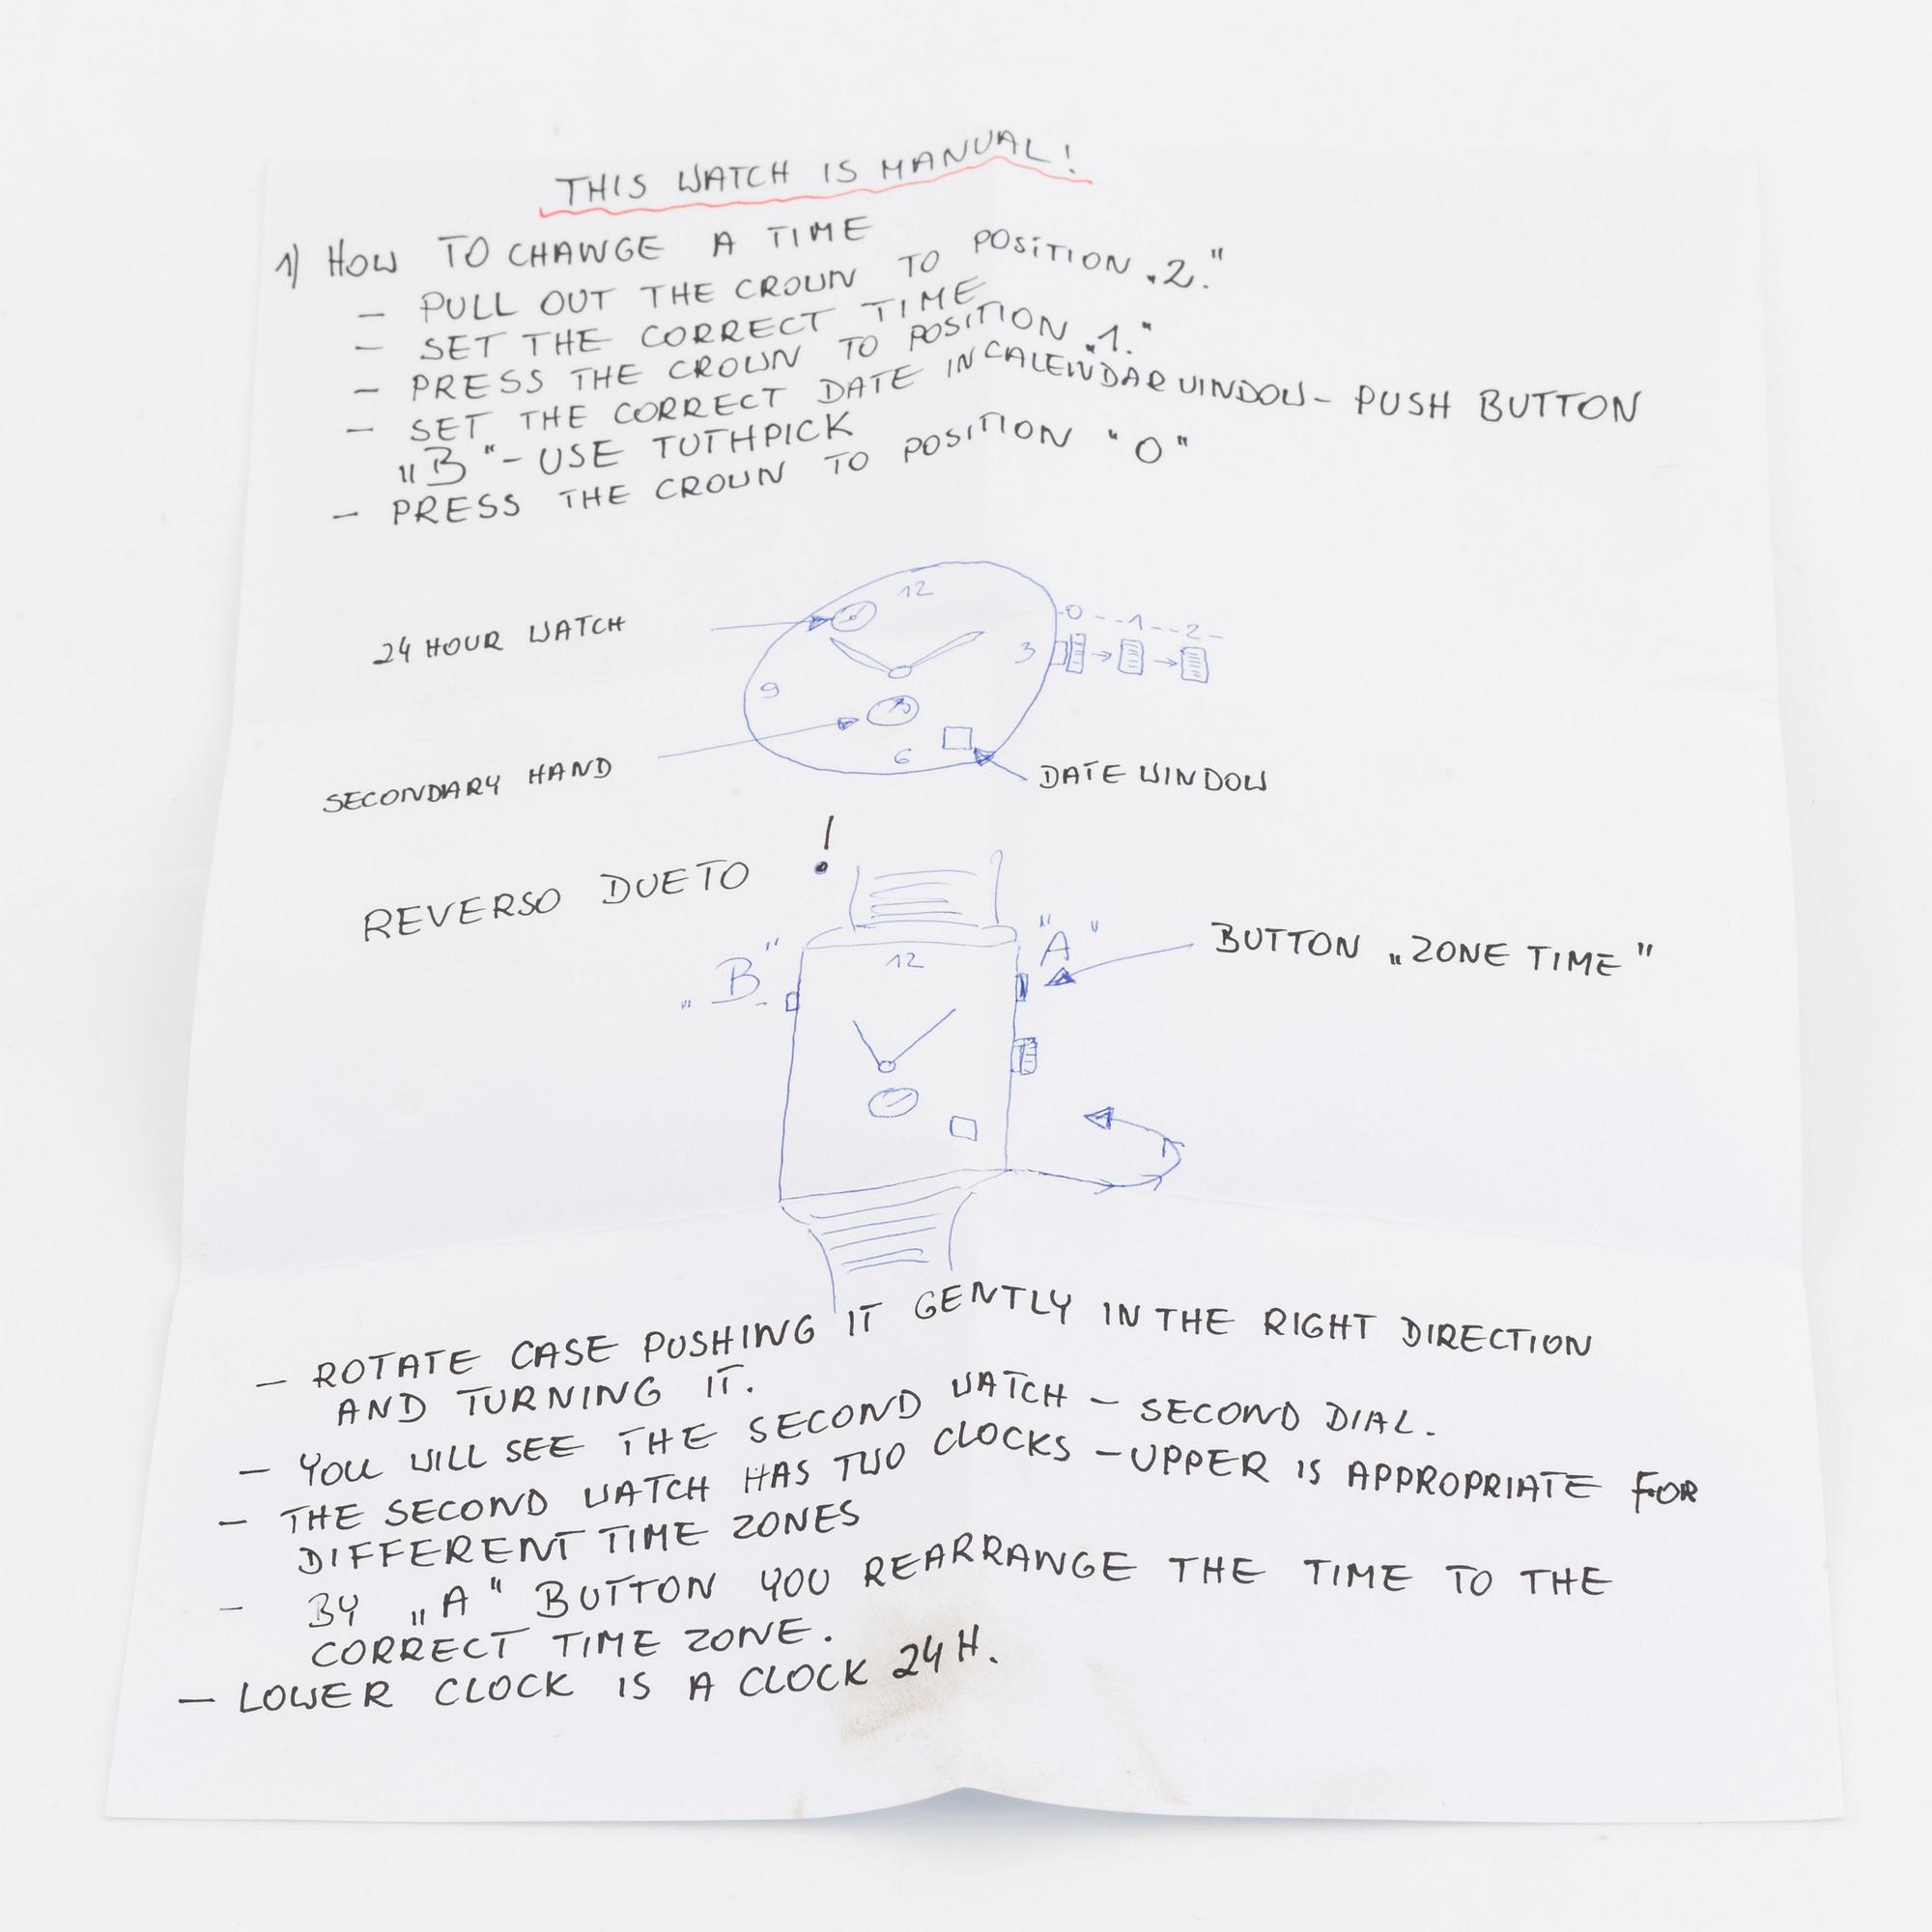 THIS WATCH IS MANUAL!
1) HOW TO CHANGE A TIME
- PULL OUT THE CROWN TO POSITION „2."
- SET THE CORRECT TIME
- PRESS THE CROWN TO POSITION „1."
- SET THE CORRECT DATE IN CALENDAR WINDOW - PUSH BUTTON
„B" - USE TUTHPICK
- PRESS THE CROWN TO POSITION "0"
12
0 - - 1 - - 2 -
24 HOUR WATCH
3
9
6
SECONDARY HAND
DATE WINDOW
REVERSO DUETO !
"A"
BUTTON „ZONE TIME"
„B"
12
- ROTATE CASE PUSHING IT GENTLY IN THE RIGHT DIRECTION
AND TURNING IT.
- YOU WILL SEE THE SECOND WATCH - SECOND DIAL.
- THE SECOND WATCH HAS TWO CLOCKS - UPPER IS APPROPRIATE FOR
DIFFERENT TIME ZONES
- BY „A" BUTTON YOU REARRANGE THE TIME TO THE
CORRECT TIME ZONE.
- LOWER CLOCK IS A CLOCK 24 H.